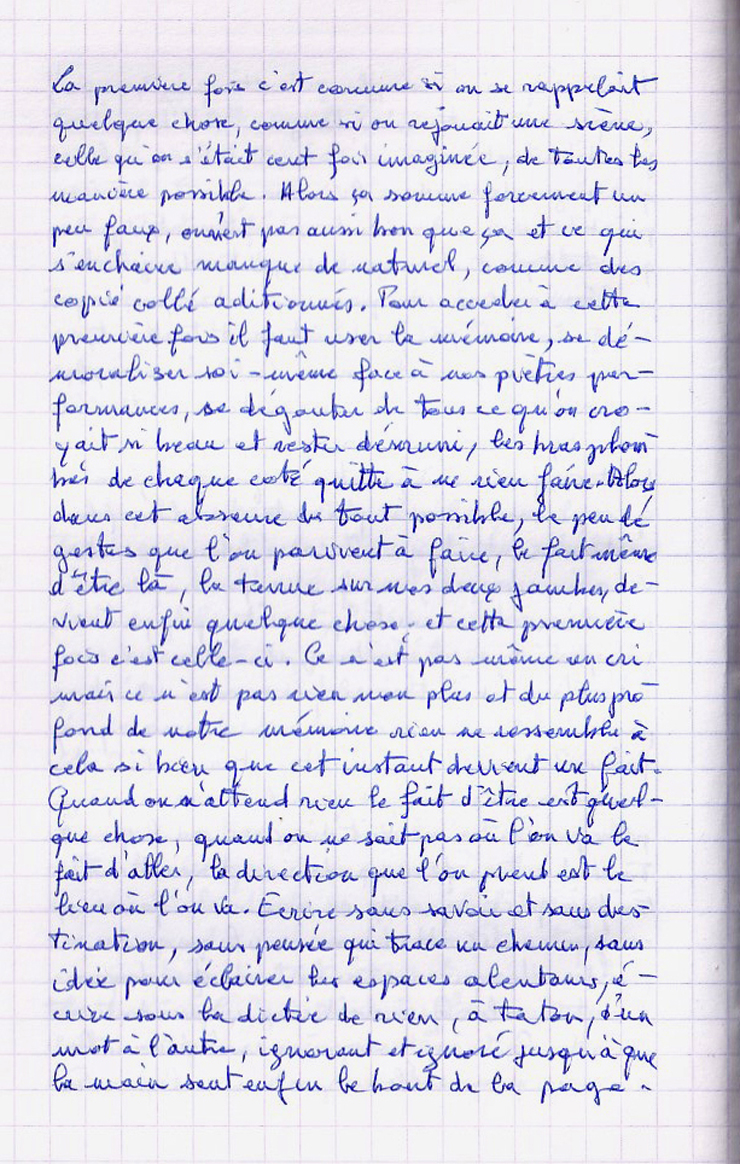 La première fois c'est comme si on se rappelait
quelque chose, comme si on rejouait une scène,
celle qu'on s'était cent fois imaginée, de toutes les
manière possible. Alors ça sonne forcement un
peu faux, on n'est pas aussi bon que ça et ce qui
s'enchaine manque de naturel, comme des
copié collé aditionnés. Pour acceder à cette
première fois il faut user la mémoire, se dé-
moraliser soi-même face à nos piètres per-
formances, se dégouter de tous ce qu'on cro-
yait si beau et rester désuni, les bras plom
bés de chaque coté quitte à ne rien faire. Alors
dans cet absence de tout possible, le peu de
gestes que l'on parvient à faire, le fait même
d'être là, la tenue sur nos deux jambes, de-
vient enfin quelque chose, et cette première
fois c'est celle-ci. Ce n'est pas même un cri
mais ce n'est pas rien non plus et du plus pro
fond de notre mémoire rien ne ressemble à
cela si bien que cet instant devient un fait.
Quand on n'attend rien le fait d'être est quel-
que chose, quand on ne sait pas où l'on va le
fait d'aller, la direction que l'on prend est le
lieu où l'on va. Ecrire sans savoir et sans des-
tination, sans pensée qui trace un chemin, sans
idée pour éclairer les espaces alentours, é-
crire sous la dictée de rien, à taton, d'un
mot à l'autre, ignorant et ignoré jusqu'à que
la main sent enfin le bout de la page.